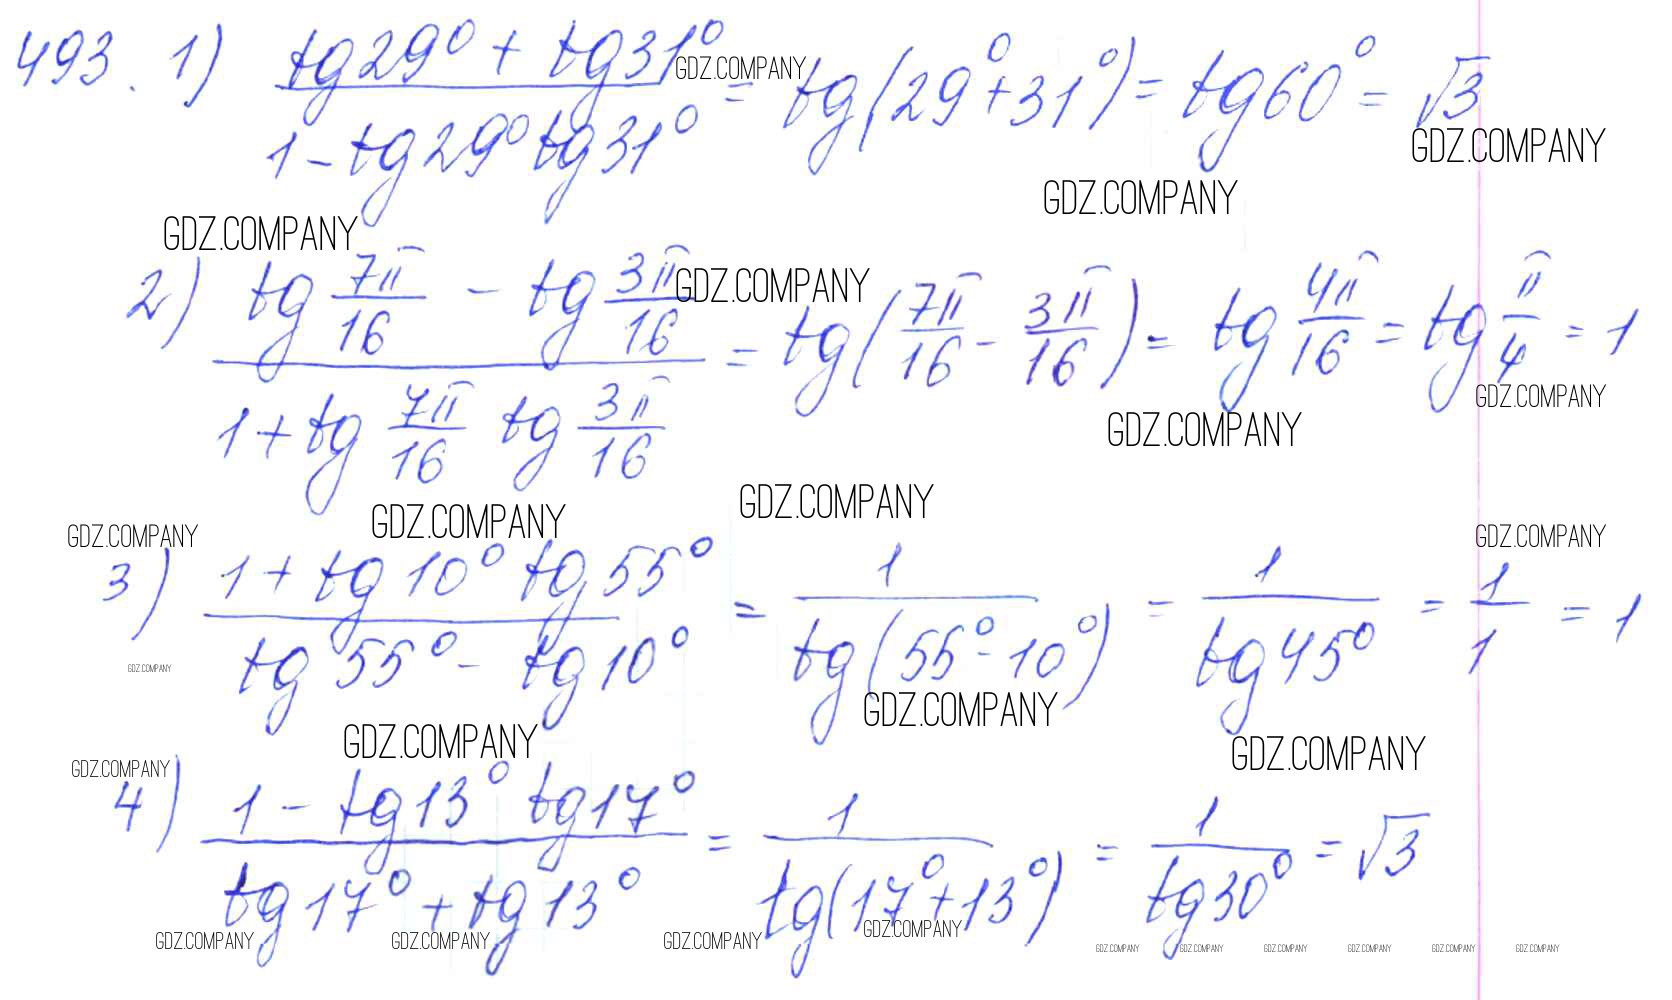 493. 1) (tg29° + tg31°)/(1 - tg29° tg31°) = tg(29° + 31°) = tg60° = √3
GDZ.COMPANY
GDZ.COMPANY
GDZ.COMPANY
GDZ.COMPANY
2) (tg 7π/16 - tg 3π/16)/(1 + tg 7π/16 tg 3π/16) = tg(7π/16 - 3π/16) = tg 4π/16 = tg π/4 = 1
GDZ.COMPANY
GDZ.COMPANY
GDZ.COMPANY
GDZ.COMPANY
GDZ.COMPANY
GDZ.COMPANY
GDZ.COMPANY
3) (1 + tg10° tg55°)/(tg55° - tg10°) = 1/tg(55° - 10°) = 1/tg45° = 1/1 = 1
GDZ.COMPANY
GDZ.COMPANY
GDZ.COMPANY
GDZ.COMPANY
GDZ.COMPANY
4) (1 - tg13° tg17°)/(tg17° + tg13°) = 1/tg(17° + 13°) = 1/tg30° = √3
GDZ.COMPANY
GDZ.COMPANY
GDZ.COMPANY
GDZ.COMPANY
GDZ.COMPANY
GDZ.COMPANY
GDZ.COMPANY
GDZ.COMPANY
GDZ.COMPANY
GDZ.COMPANY